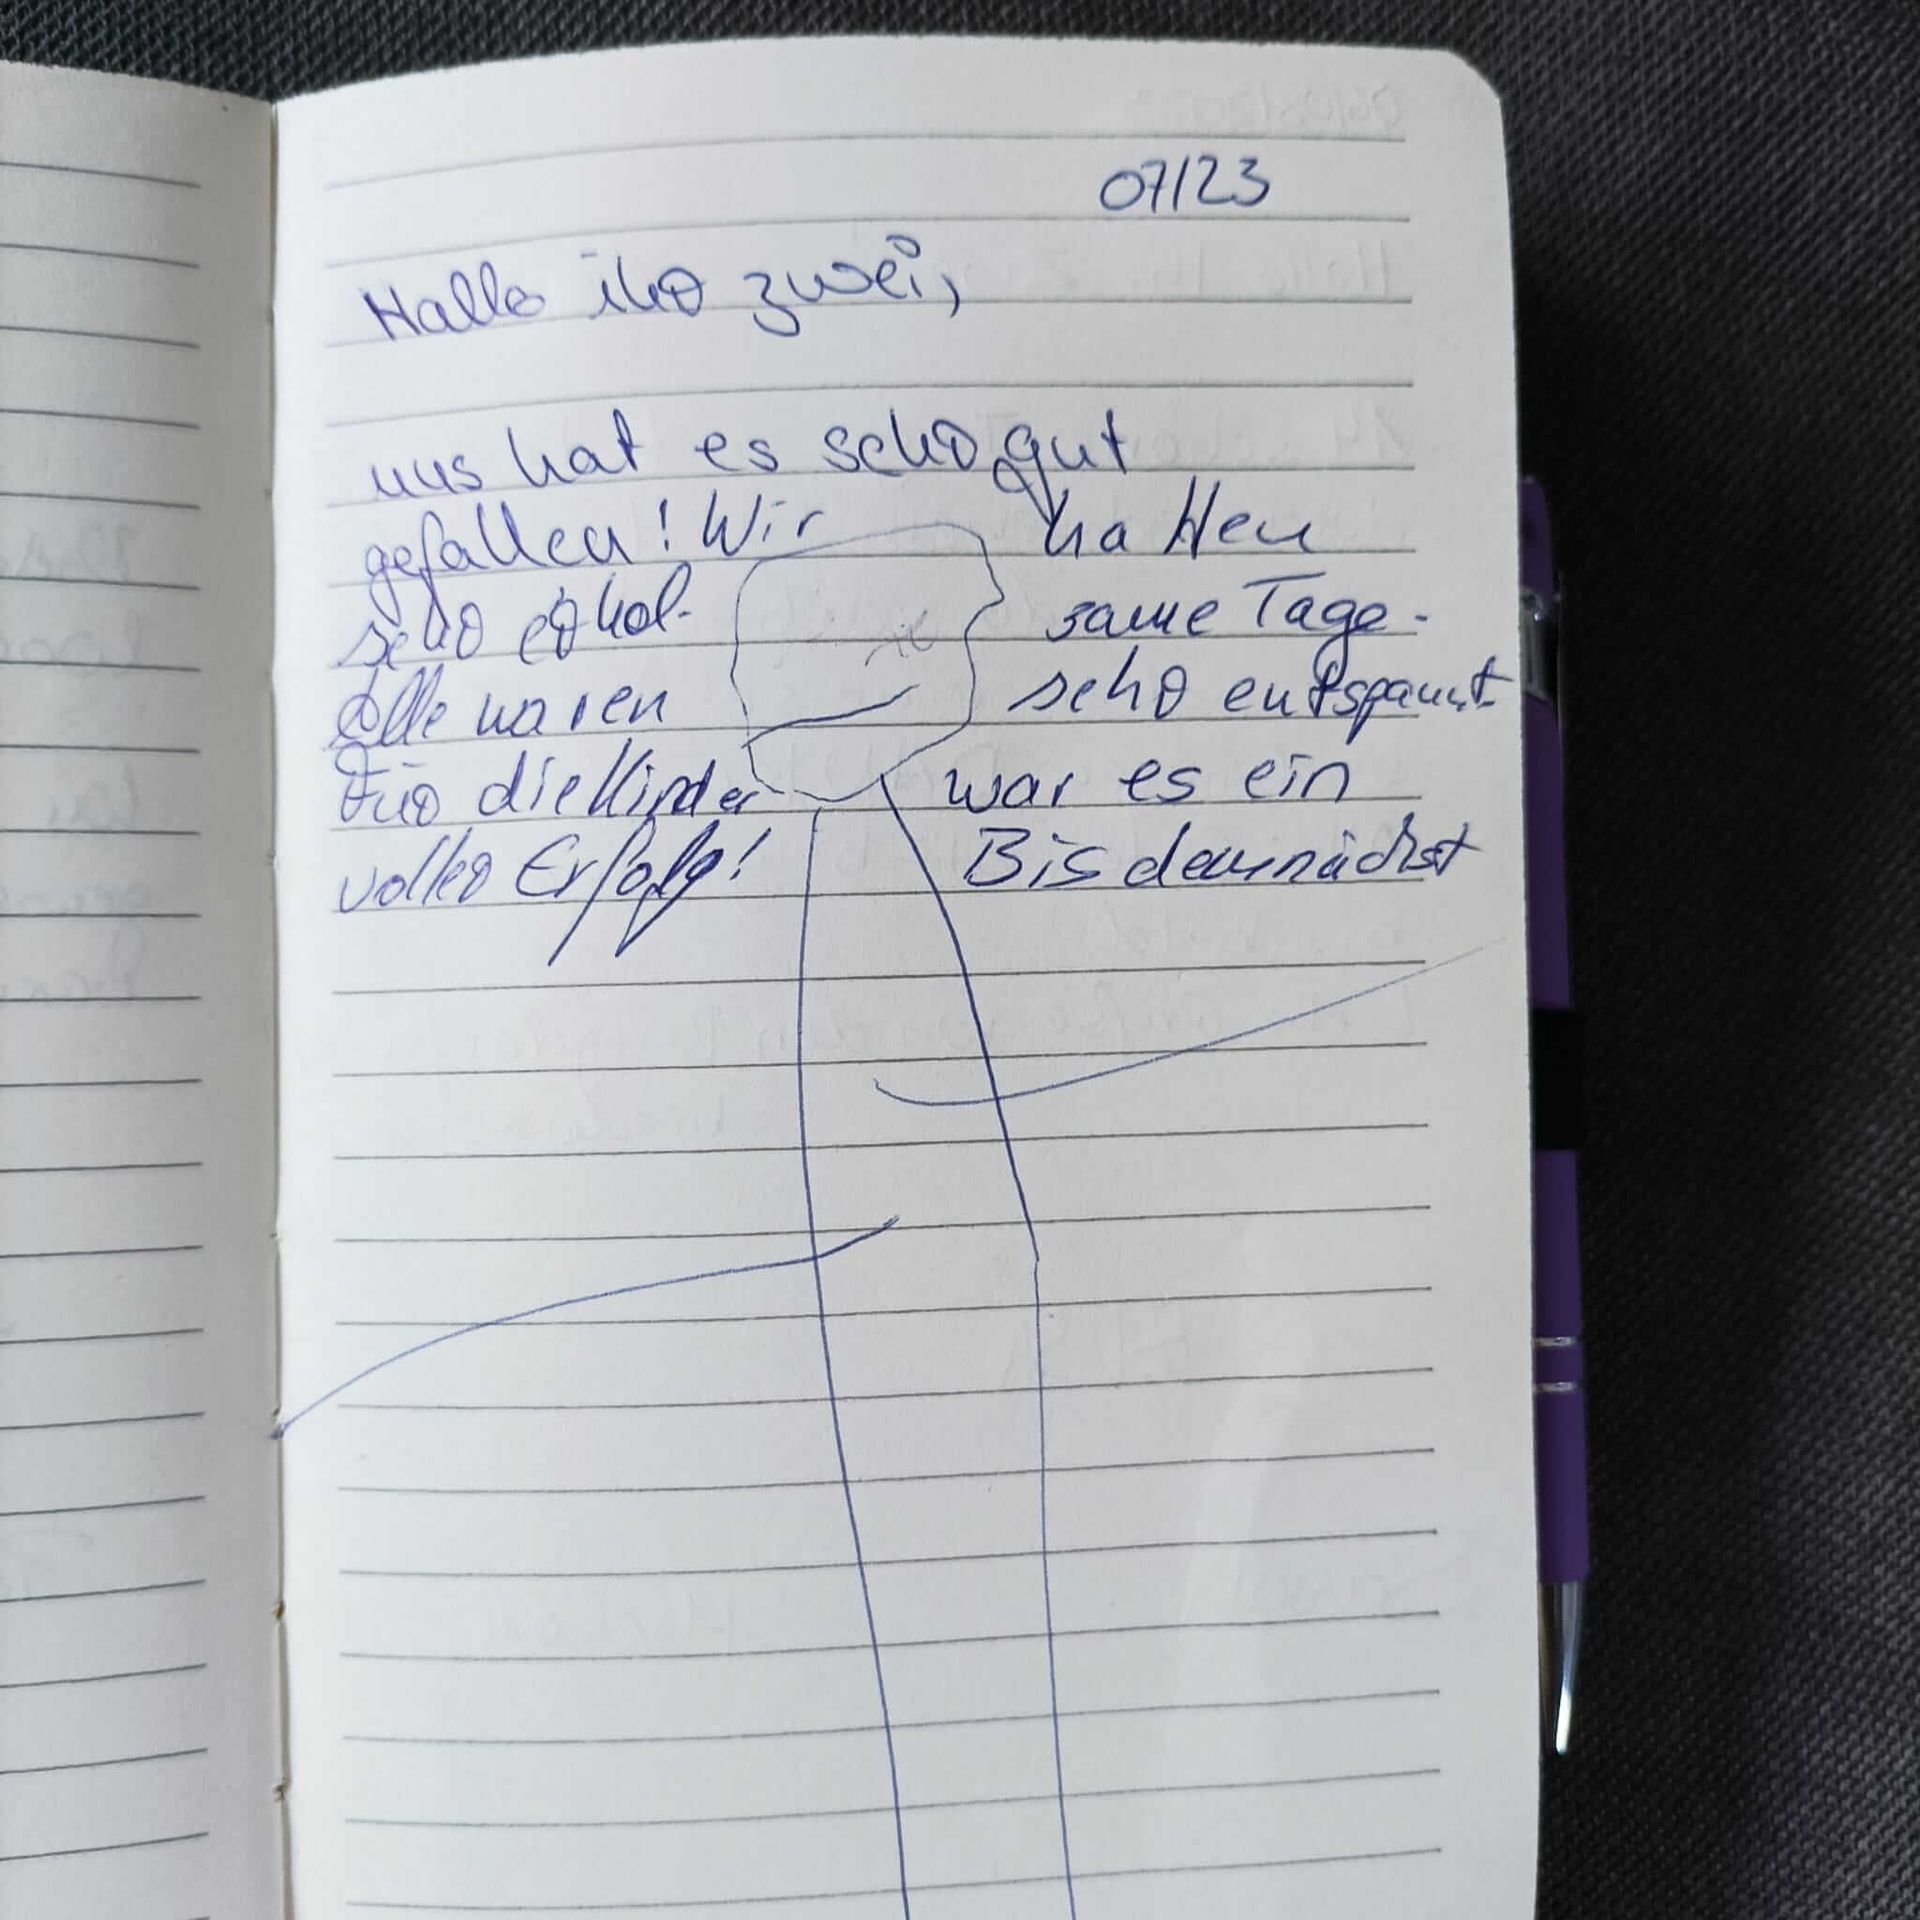 07/23
Hallo ihr zwei,
uns hat es sehr gut
gefallen! Wir hatten
sehr erhol- same Tage.
Alle waren sehr entspannt.
Für die Kinder war es ein
voller Erfolg! Bis demnächst